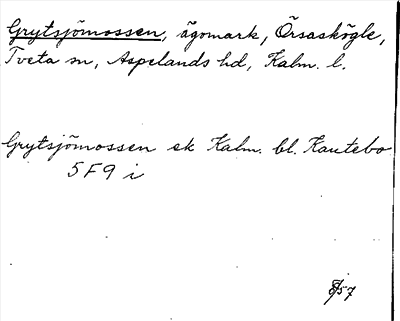 Grytsjömossen, ägomark, Örsaskögle,
Tveta sn, Aspelands hd, Kalm. l.
Grytsjömossen ek Kalm. bl. Kautebo
5 F 9 i